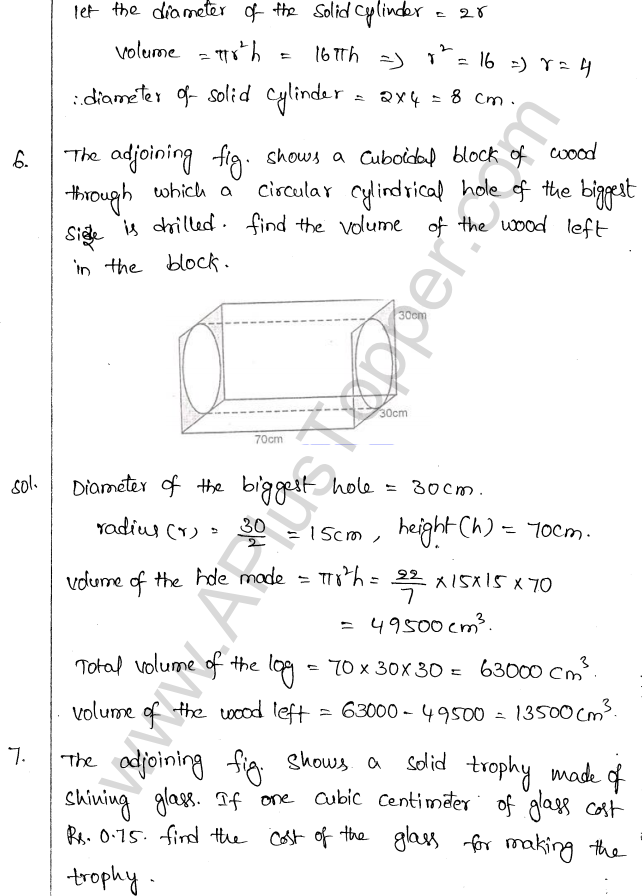 let the diameter of the solid cylinder = 2r
volume = πr²h = 16πh => r² = 16 => r = 4
∴ diameter of solid cylinder = 2×4 = 8 cm.
6. The adjoining fig. shows a cuboidal block of wood
through which a circular cylindrical hole of the biggest
size is drilled. find the volume of the wood left
in the block.
30cm
30cm
70cm
sol. Diameter of the biggest hole = 30cm.
radius (r) = 30/2 = 15cm, height (h) = 70cm.
volume of the hole made = πr²h = 22/7 ×15×15×70
= 49500 cm³.
Total volume of the log = 70×30×30 = 63000 cm³.
volume of the wood left = 63000 - 49500 = 13500 cm³.
7. The adjoining fig. shows a solid trophy made of
shining glass. If one cubic centimeter of glass cost
Rs. 0.75. find the cost of the glass for making the
trophy.
www.APlusTopper.com